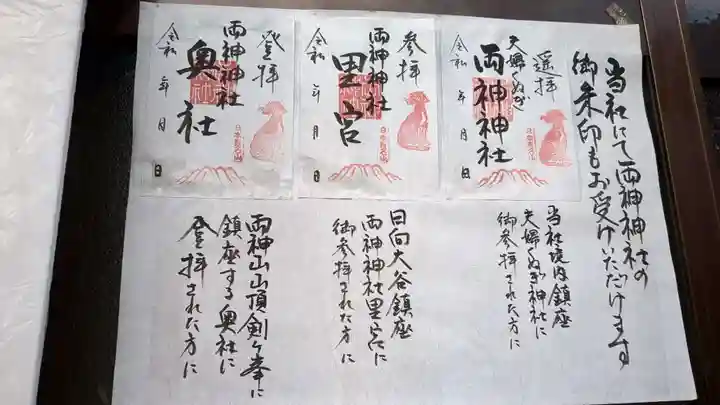 当社にて両神神社の
御朱印もお受けいただけます
遥拝
夫婦くぬぎ
両神神社
令和　年　月　日
日本百名山
当社境内鎮座
夫婦くぬぎ神社に
御参拝された方に
参拝
両神神社
里宮
令和　年　月　日
日本百名山
日向大谷鎮座
両神神社里宮に
御参拝された方に
登拝
両神神社
奥社
令和　年　月　日
日本百名山
両神山山頂剣ヶ峯に
鎮座する奥社に
登拝された方に